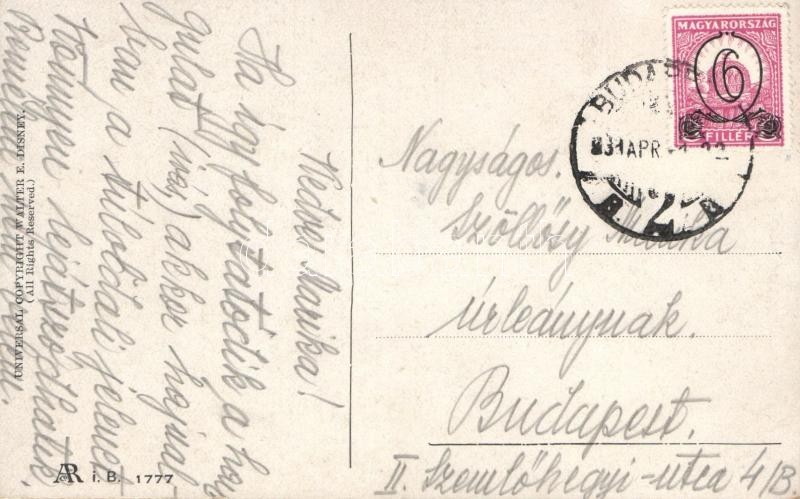 Kedves Marika!
Ha így folytatódik a han
gulat (más) akkor hajnal
ban a túloldali jelenet
könnyen lejátszódhatik.
Remélem nem
UNIVERSAL COPYRIGHT WALTER E. DISNEY.
(All Rights Reserved.)
AR i. B. 1777
MAGYARORSZÁG
6
FILLÉR
BUDAPEST
931 APR
Nagyságos
Szőllősy Marika
úrleánynak.
Budapest.
II. Szemlőhegyi-utca 4/B